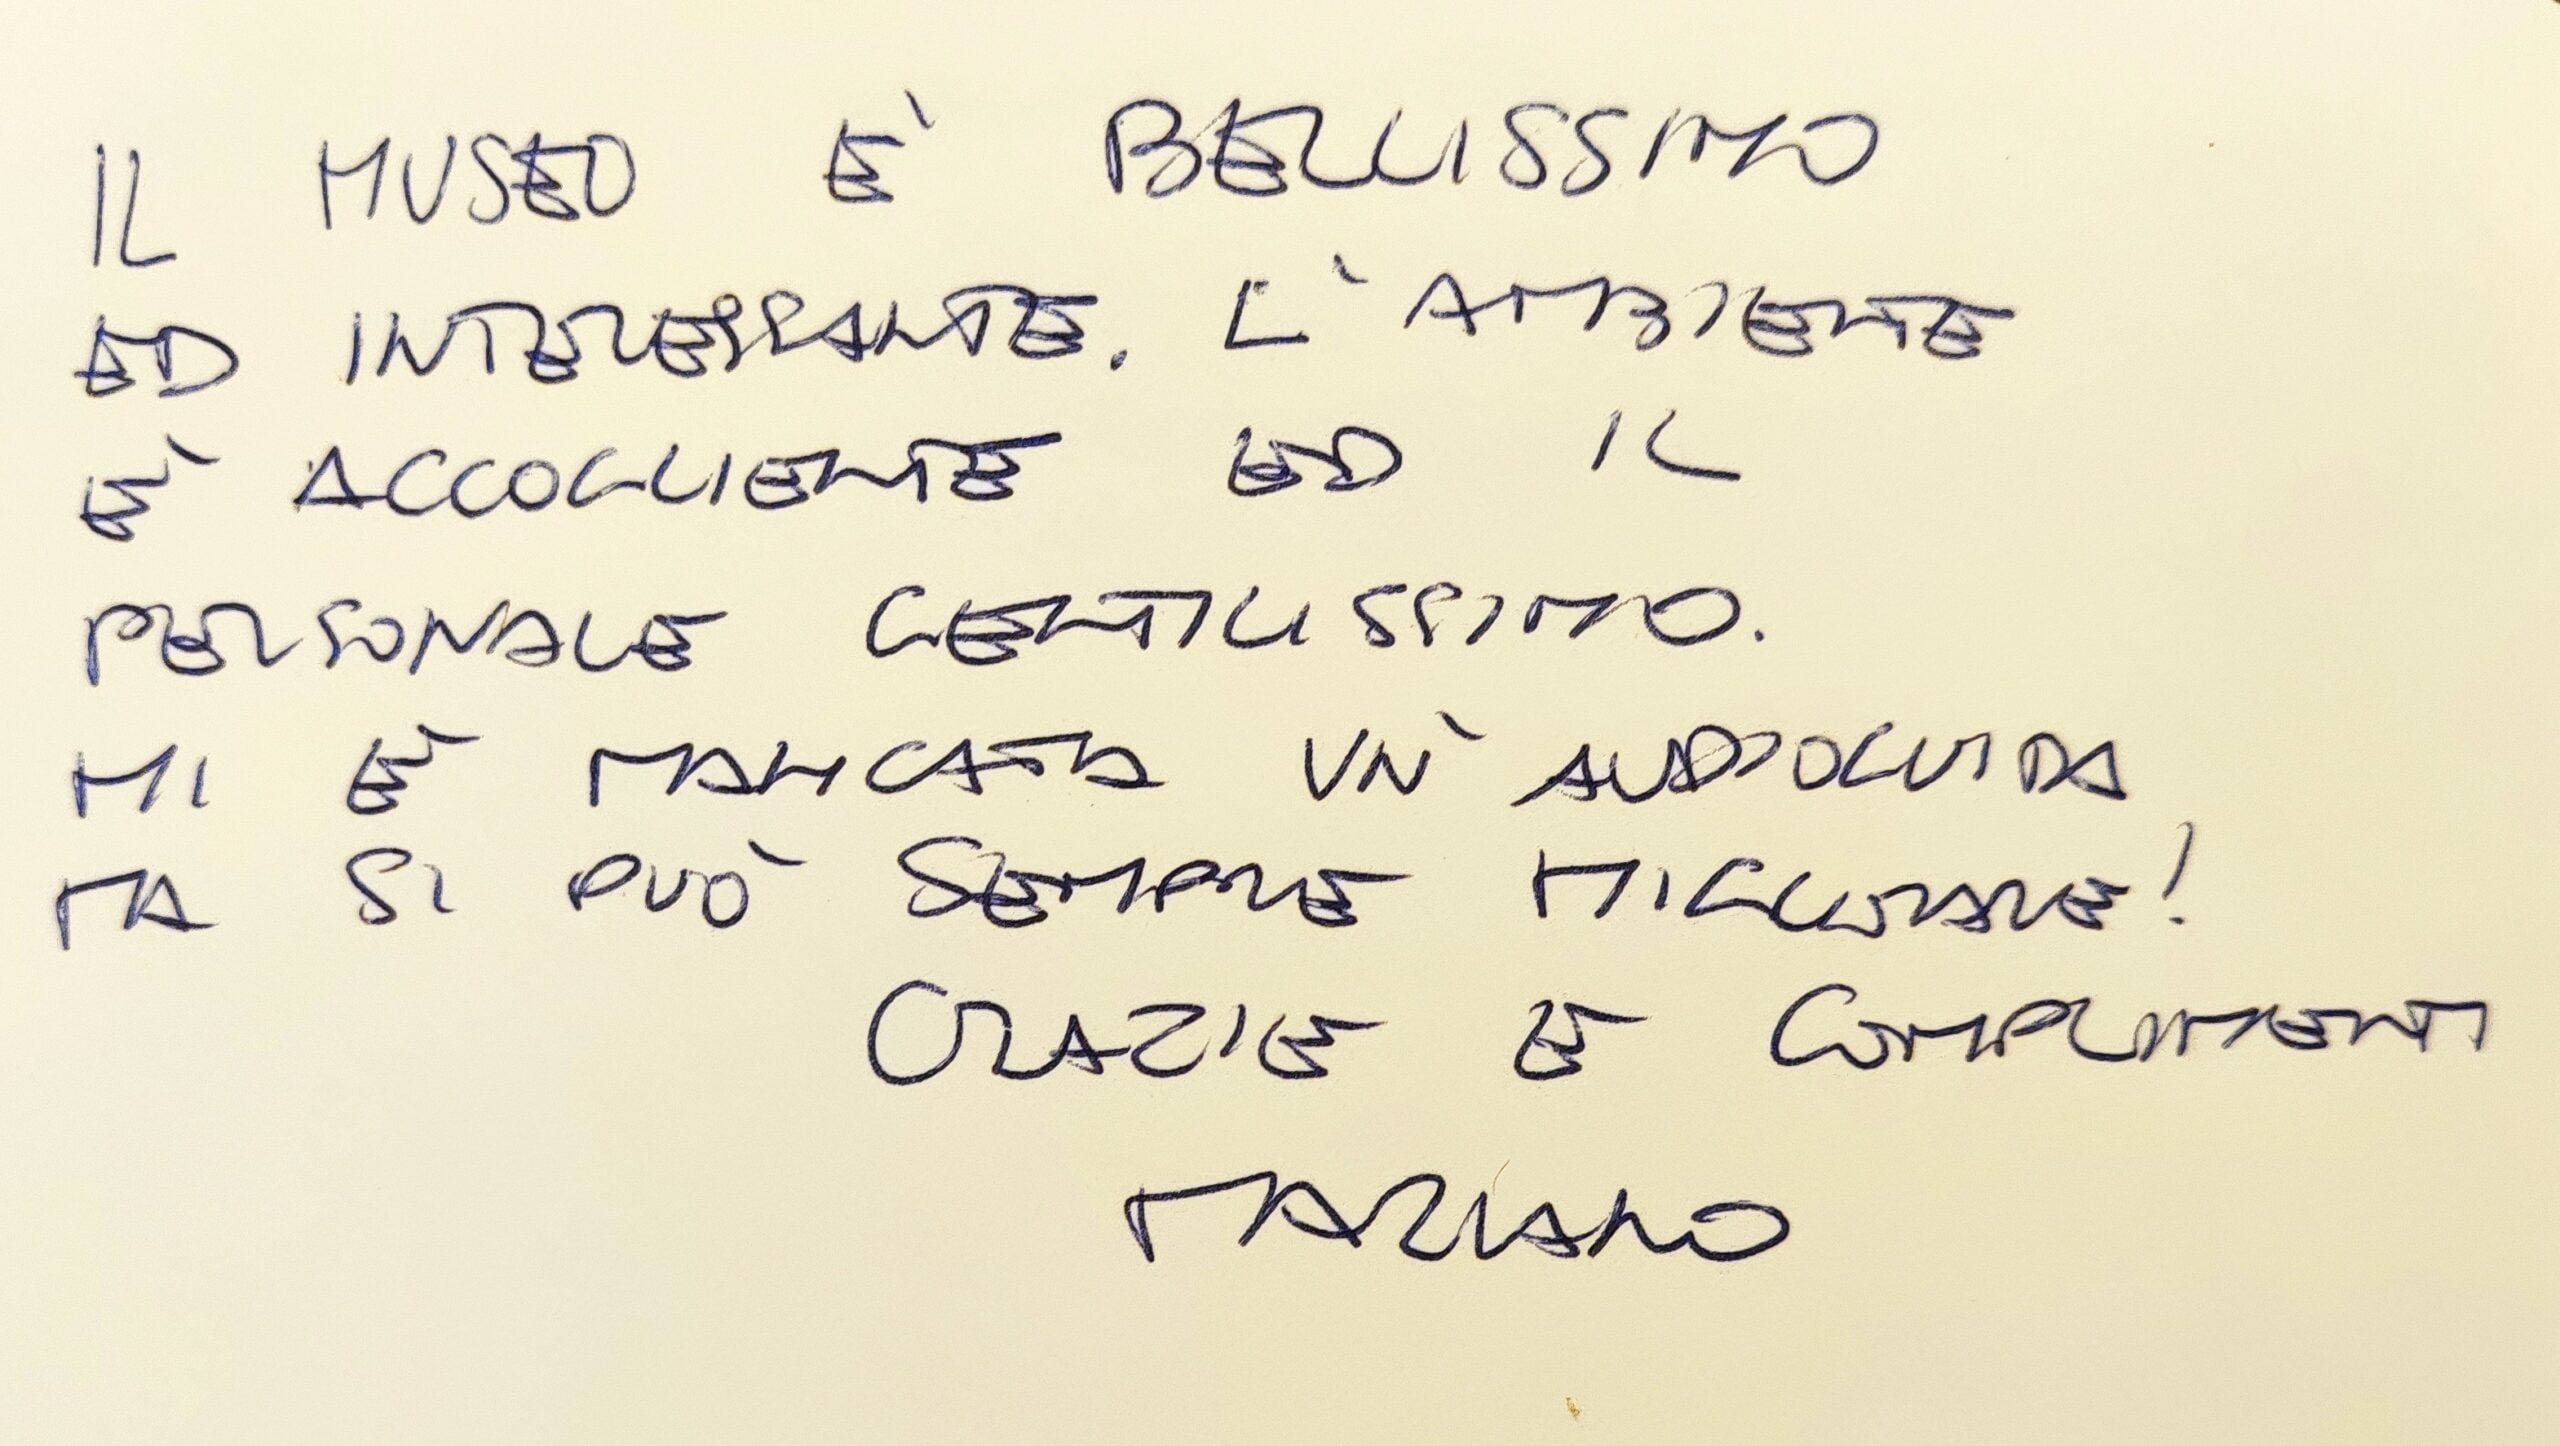 IL MUSEO È BELLISSIMO
ED INTERESSANTE. L'AMBIENTE
È ACCOGLIENTE ED IL
PERSONALE GENTILISSIMO.
MI È MANCATA UN'AUDIOGUIDA
MA SI PUÒ SEMPRE MIGLIORARE!
GRAZIE E COMPLIMENTI
MARIANO